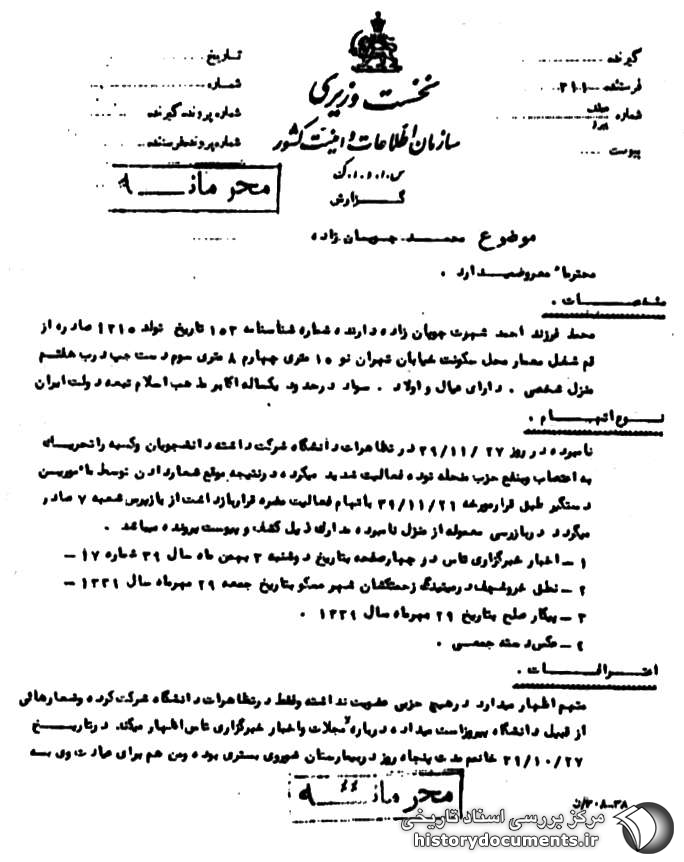 گیرنده
فرستنده ۳۱۱
شماره
پیوست
نخست وزیری
سازمان اطلاعات و امنیت کشور
س.ا.و.ا.ک
گزارش
تاریخ
شماره
شماره پرونده گیرنده
شماره پرونده فرستنده
محرمانه
موضوع محمد چوپان زاده
محترماً معروضیدارد .
مشخصات .
محمد فرزند احمد شهرت چوپان زاده دارنده شماره شناسنامه ۱۵۳ تاریخ تولد ۱۳۱۵ صادره از
قم شغل معمار محل سکونت خیابان تهران نو ۱۰ متری چهارم ۸ متری سوم دست چپ درب هفتم
منزل شخصی . دارای عیال و اولاد . سواد در حدود یکساله اکابر مذهب اسلام تبعه دولت ایران
نوع اتهام .
نامبرده در روز ۲۷ /۳۹/۱۱ در تظاهرات دانشگاه شرکت داشته دانشجویان و کسبه را تحریک
به اعتصاب و بنفع حزب منحله توده فعالیت شدید میکرده و در نتیجه موقع شعار دادن توسط مامورین
دستگیر طبق قرار مورخه ۳۹/۱۱/۲۹ باتهام فعالیت مضره قرار بازداشت از بازپرس شعبه ۷ صادر
میگردد در بازرسی معموله از منزل نامبرده مدارک ذیل کشف و پیوست پرونده میباشد .
۱ – اخبار خبرگزاری تاس در چهار صفحه بتاریخ دوشنبه ۳ بهمن ماه سال ۳۹ شماره ۱۷ –
۲ – نطق خروشچف در میتینگ زحمتکشان شهر مسکو بتاریخ جمعه ۲۹ مهرماه سال ۱۳۳۹ –
۳ – پیکار صلح بتاریخ ۲۹ مهرماه سال ۱۳۳۹ .
۴ – عکس دسته جمعی .
اعترافات .
متهم اظهار میدارد در هیچ حزبی عضویت نداشته و فقط در تظاهرات دانشگاه شرکت کرده و شعارهائی
از قبیل دانشگاه پیروز است میداده درباره مجلات و اخبار خبرگزاری تاس اظهار میکند در تاریخ
۳۹/۱۰/۲۷ خانمم مدت پنجاه روز در بیمارستان شوروی بستری بوده و من هم برای عیادت وی به
محرمانه
مرکز بررسی اسناد تاریخی
historydocuments.ir